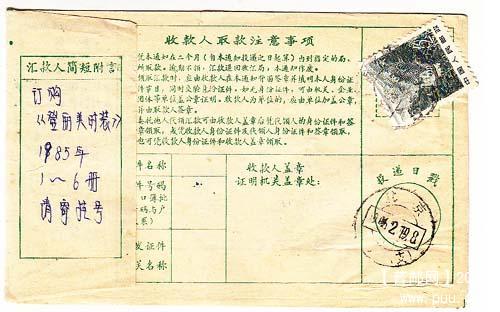 汇款人简短附言
订购
《登丽美时装》
1985年
1～6册
请寄挂号
收款人取款注意事项
凭本通知在二个月(自本通知投递之日起算)内到指定的局、
所取款。逾期不领,汇款退回收汇局,本通知作废。
领取汇款时,应由收款人在本通知背面签章并填明本人身份证
件节目,同时交验身份证件。如无身份证件,可由机关、企业、
团体等单位盖公章证明。收款人为单位的,应由单位加盖公章,
并由取款人签章。
委托他人代领汇款可由收款人盖章后凭代领人的身份证件和签
章领取,或凭收款人身份证件及代领人的身份证件和签章领取,
也可凭收款人身份证件及收款人盖章领取。
件名称
件号码
收款人盖章
证明机关盖章处:
发证件
关名称
投递日戳
北京
【普邮网】
www.puu